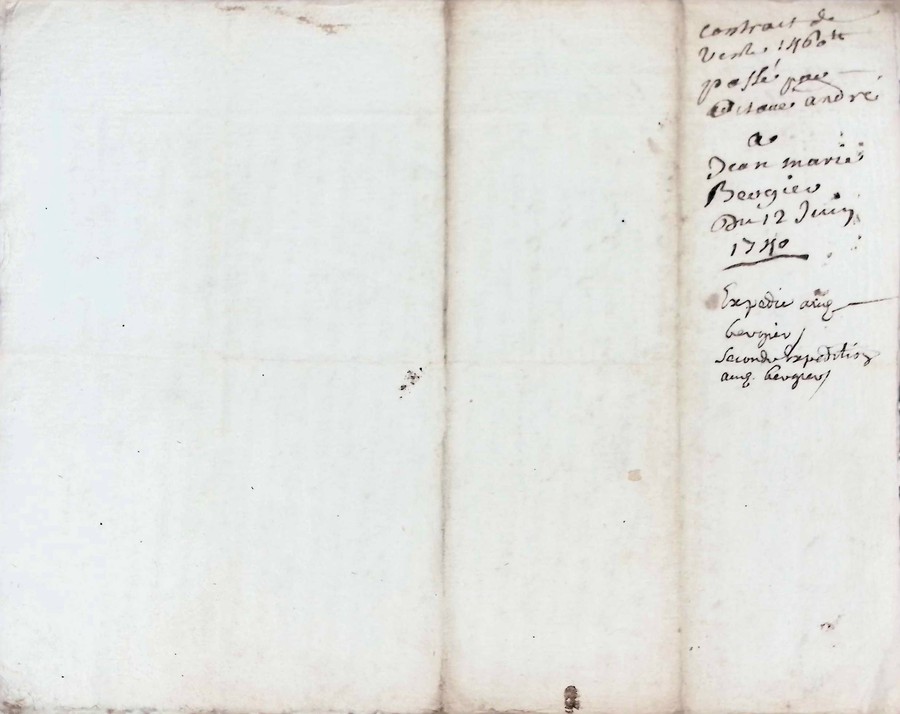 contract de
vente 1460 tt
passé par
andré
a
Jean marie
Bergier
Du 12 Juin
1740
Expedie audq
bergier
Seconde Expedition
audq bergier